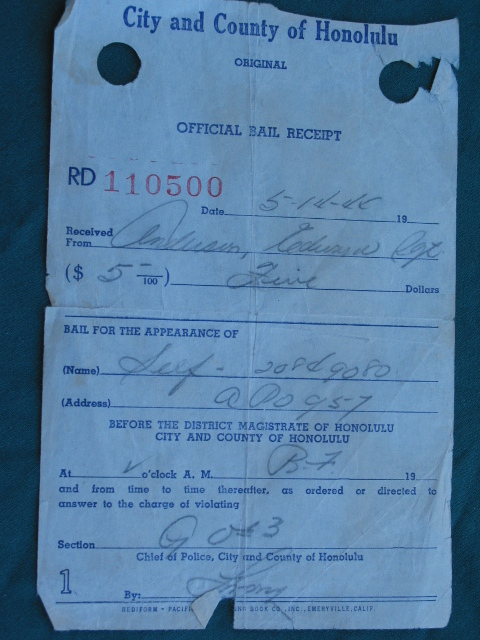 City and County of Honolulu
ORIGINAL
OFFICIAL BAIL RECEIPT
RD 110500
Date 5-14-46 19
Received From Anderson, Edward
($ 5 — /100) Five Dollars
BAIL FOR THE APPEARANCE OF
(Name) Self -
(Address) APO 957
BEFORE THE DISTRICT MAGISTRATE OF HONOLULU
CITY AND COUNTY OF HONOLULU
At o'clock A. M. B.F. 19
and from time to time thereafter, as ordered or directed to
answer to the charge of violating
Section
Chief of Police, City and County of Honolulu
1 By:
REDIFORM • PACIFIC BOOK CO., INC., EMERYVILLE, CALIF.